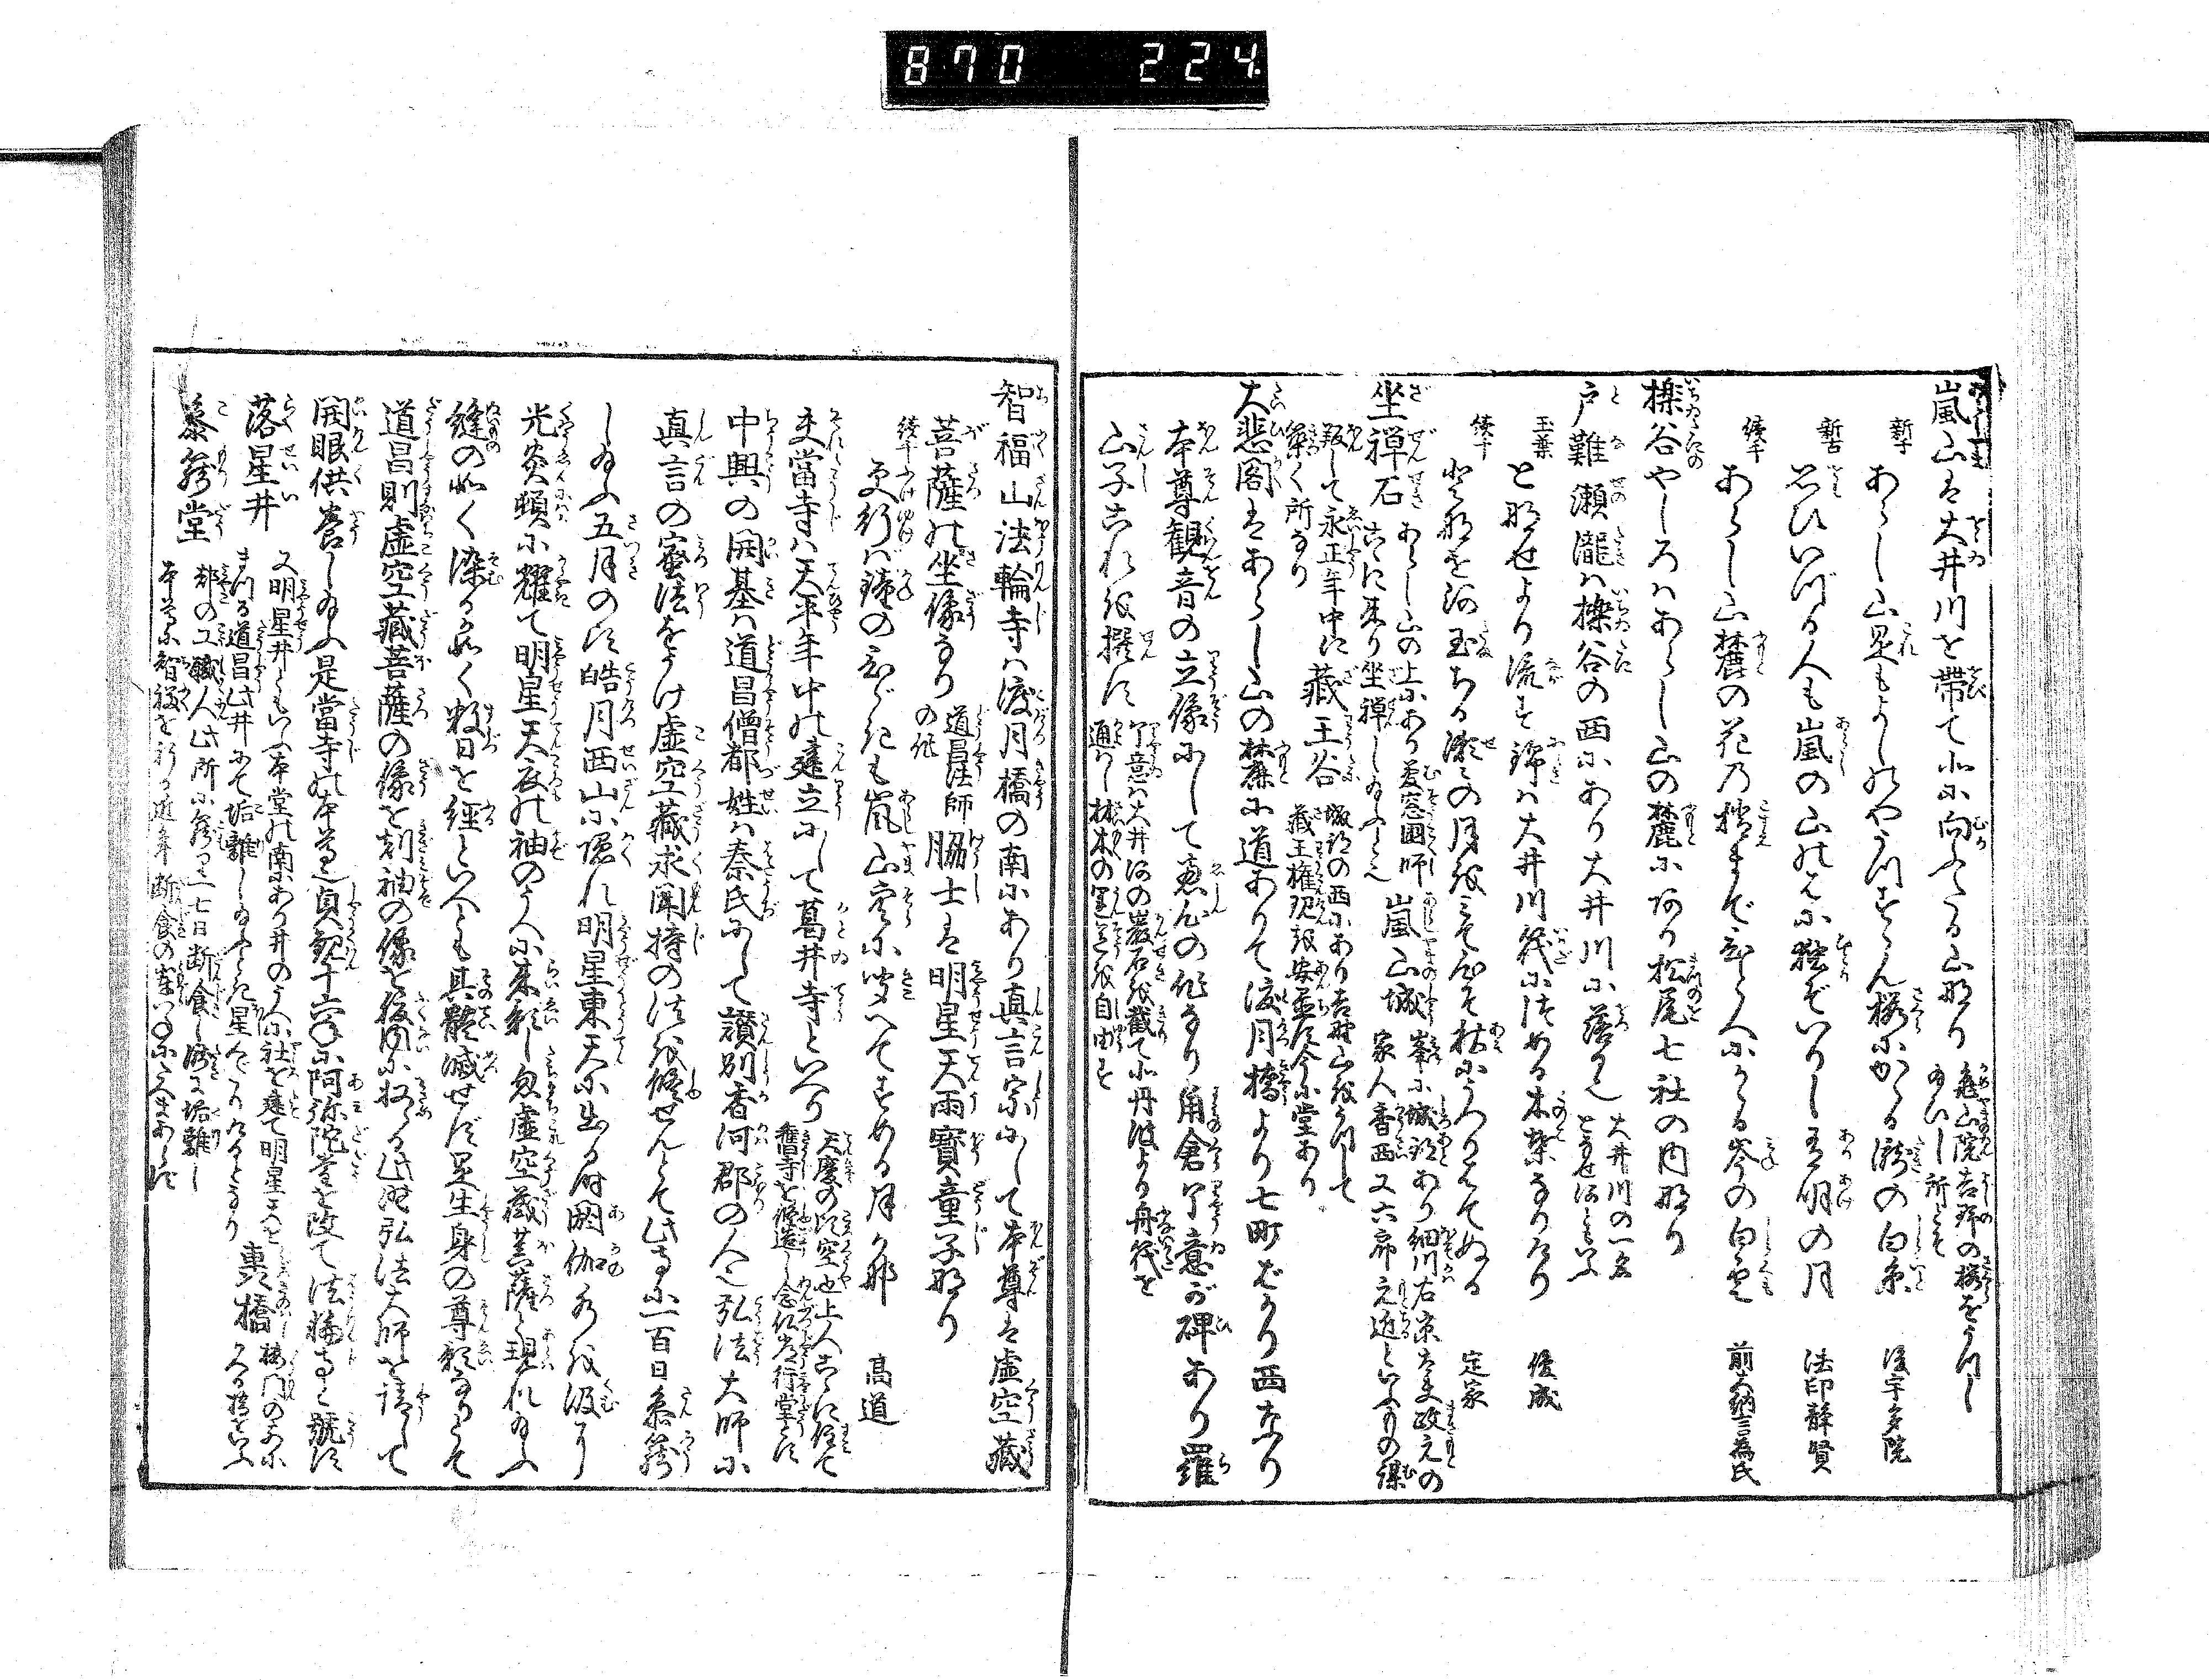 870 224
嵐山は大井川を帯て北に向ふたる山なり 亀山院吉野の桜をうつし
給ひし所とそ
新千 あらし山是もよしのやうつすらん桜にかゝる滝の白糸 後宇多院
新古 思ひいづる人も嵐の山のはに独ぞいりし有明の月 法印静賢
続千 あらし山麓の花の梢まで一つにかゝる峯の白雲 前大納言為氏
櫟谷やしろはあらし山の麓にあり松尾七社の内なり
戸難瀬滝は櫟谷の西にあり大井川に落る也 大井川の一名
となせ河ともいふ
玉葉 となせより流す錦は大井川筏につめる木葉なりけり 俊成
続千 となせ河玉ちる瀬々の月をみて心そ秋にうつりはてぬる 定家
坐禅石 あらし山の上にあり夢窓国師
こゝに来り坐禅し給ふとぞ
嵐山城 峯に城跡あり細川右京大夫政元の
家人香西又六郎元近といふもの謀
叛して永正年中に
築く所なり
蔵王谷 城跡の西にあり吉野山をうつして
蔵王権現を安置す今に堂あり
大悲閣はあらし山の麓に道ありて渡月橋より七町ばかり西なり
本尊観音の立像にして恵心の作なり角倉了意が碑あり羅
山子これを撰す 了意は大井河の巌石を截て北丹波より舟筏を
通し材木の運送を自由す
智福山法輪寺は渡月橋の南にあり真言宗にして本尊は虚空蔵
菩薩の坐像なり 道昌法師
の作
脇士は明星天雨宝童子なり
続千 ふけゆけば鐘のひゞきも嵐山空にきこへてすめる月かな 高道
夫当寺は天平年中の建立にして葛井寺といへり 天慶の頃空也上人こゝに住て
旧寺を修造し念仏常行堂とす
中興の開基は道昌僧都姓は秦氏にして讃州香河郡の人也弘法大師に
真言の密法をうけ虚空蔵求聞持の法を修せんとて此寺に一百日参篭
し給ふ五月の頃皓月西山に隠れ明星東天に出る時閼伽水を汲けり
光炎頓に耀て明星天衣の袖のうへに来影し忽虚空蔵菩薩と現れ給ふ
縫の如く染るが如く数日を経といへども其体滅せず是生身の尊影なりとて
道昌則虚空蔵菩薩の像を刻袖の像を後内に収る此時弘法大師を請して
開眼供養し給ふ是当寺の本尊也貞観十六年に阿弥陀堂を改て法輪寺と号す
落星井 又明星井ともいふ本堂の南にあり井のうへに社を建て明星天を
まつる道昌此井にて垢離し給やとき星くだりけるとなり
轟橋 楼門の前に
ある橋をいふ
参篭堂 都の工職人此所に篭りて一七日断食し滝に垢離し
本尊に智福を祈る近年断食の輩つねにたへまあらず